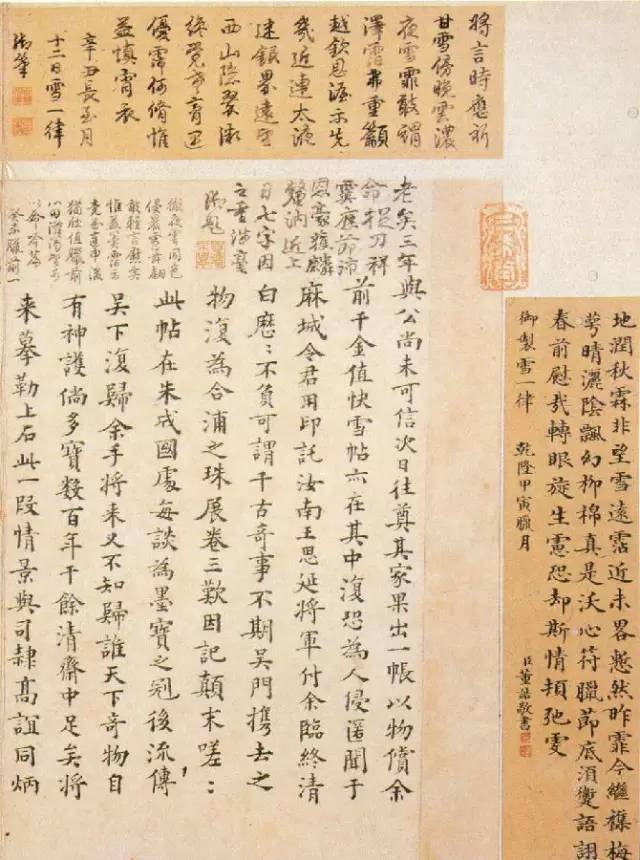 地潤秋霖非望雪遠霑近未畧愁然昨霏今繼襍梅
萼晴灑陰飄幻柳棉真是沃心符臘節底須夔語詡
春前慰哉轉眼旋生慮恐却斯情頰弛雯
御製雪一律 乾隆甲寅臘月
臣董誥敬書
將言時應祈
甘雪傍晚雲濃
夜雪霏敢謂
澤霑弗重籲
越欽恩渥示先
幾近連太液
迷銀界遠望
西山隱翠微
終覺
優霈何脩惟
益慎宵衣
辛丑長至月
十二日雪一律
御筆
老矣三年
命投刀祥
霙應節沛
恩豪獲麟
近上
日七字因
之重
御題
徹夜雲同色
侵晨雪舞翩
惟益喜霑云
癸未臘前一
與公尚未可信次日往尊其家果出一帳以物償余
前千金值快雪帖亦在其中復恐為人侵匿聞于
麻城令君用印託汝南王思延將軍付余臨終清
白歷:不負可謂千古奇事不期吳門攜去之
物復為合浦之珠展卷三歎因記顛末嗟:
此帖在朱成國處每談為墨寶之冠後流傳
吳下復歸余手將來又不知歸誰天下奇物自
有神護倘多寶數百年于餘清齋中足矣將
來摹勒上石此一段情景與司隸高誼同炳